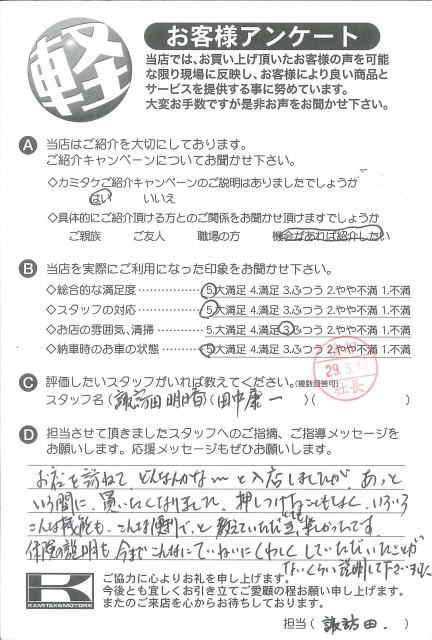 軽
お客様アンケート
当店では、お買い上げ頂いたお客様の声を可能
な限り現場に反映し、お客様により良い商品と
サービスを提供する事に努めています。
大変お手数ですが是非お声をお聞かせ下さい。
A 当店はご紹介を大切にしております。
ご紹介キャンペーンについてお聞かせ下さい。
◇カミタケご紹介キャンペーンのご説明はありましたでしょうか
はい いいえ
◇具体的にご紹介頂ける方とのご関係をお聞かせ頂けますでしょうか
ご親族 ご友人 職場の方 機会があれば紹介したい
B 当店を実際にご利用になった印象をお聞かせ下さい。
◇総合的な満足度……………5.大満足 4.満足 3.ふつう 2.やや不満 1.不満
◇スタッフの対応……………5.大満足 4.満足 3.ふつう 2.やや不満 1.不満
◇お店の雰囲気、清掃………5.大満足 4.満足 3.ふつう 2.やや不満 1.不満
◇納車時のお車の状態………5.大満足 4.満足 3.ふつう 2.やや不満 1.不満
29.5.12
社長
C 評価したいスタッフがいれば教えてください。(複数回答可)
スタッフ名(諏訪田明日香)(田中康一)( )
D 担当させて頂きましたスタッフへのご指摘、ご指導メッセージを
お願いします。応援メッセージもぜひお願いします。
お店を訪ねて、どんなんかな〜と入店しましたが、あっと
いう間に、買いたくなりました。押しつけることもなく、いろいろ
こんな機能も、こんな便利で、と教えていただき、とても楽しかったです。
保険の説明も今までこんなにていねいにくわしくしていただいたことが
ないくらい説明して下さいました
K
KAMITAKEMOTORS
ご協力に心よりお礼を申し上げます。
今後とも宜しくお引き立てご愛顧の程お願い申し上げます。
またのご来店を心からお待ちしております。
担当(諏訪田.)